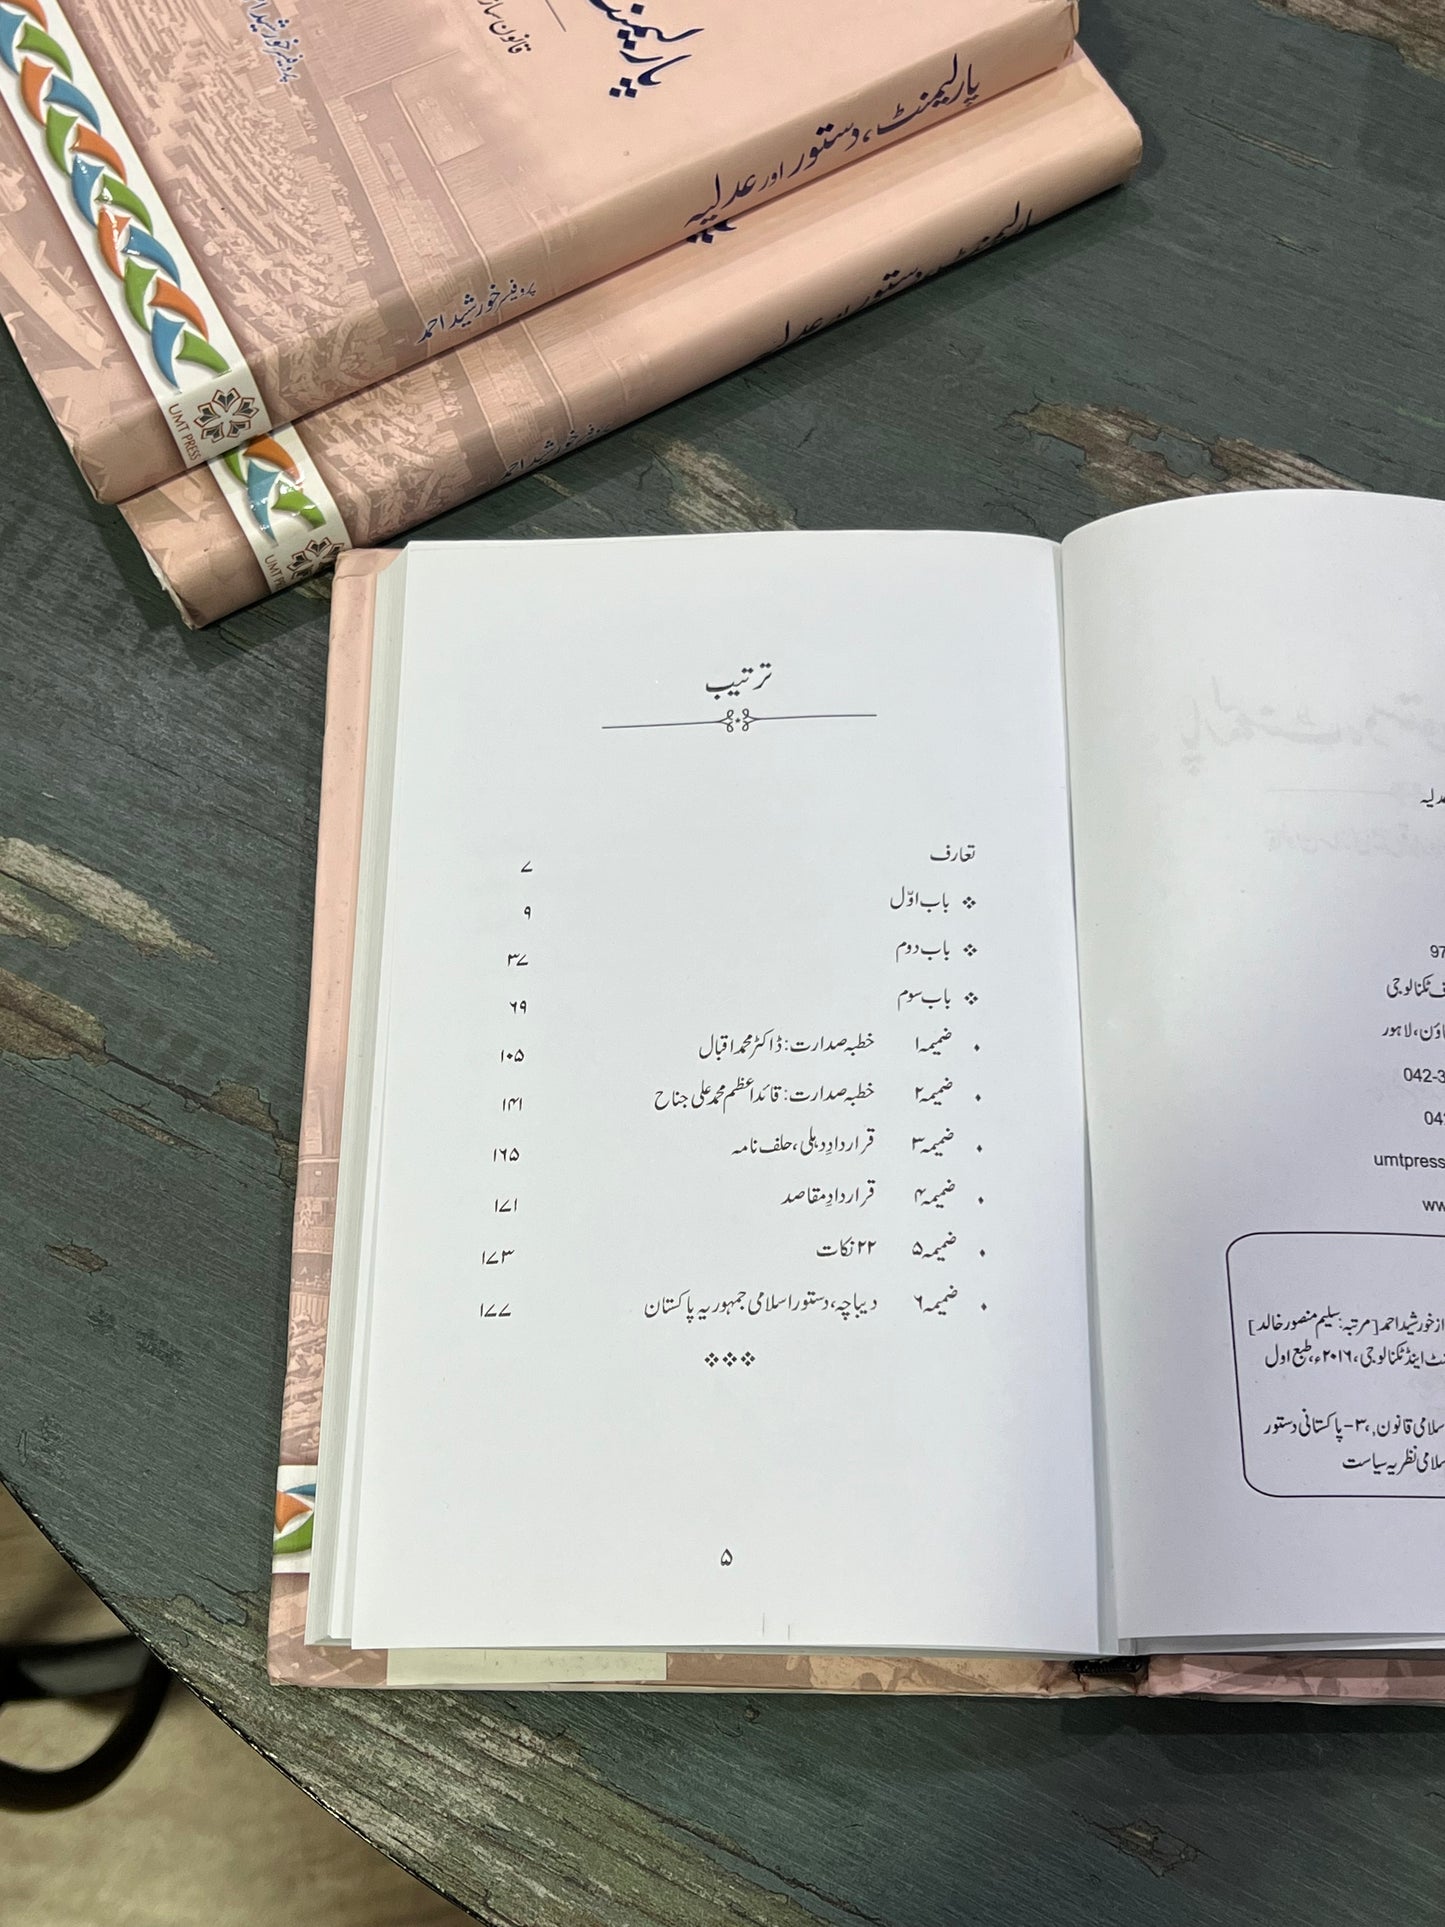 پارلیمنٹ
قانون ساز
پروفیسر خورشید
پارلیمنٹ، دستور اور عدلیہ
پروفیسر خورشید احمد
UMT PRESS
پارلیمنٹ، دستور اور عدلیہ
پروفیسر خورشید احمد
ترتیب
تعارف ۷
❖ باب اوّل ۹
❖ باب دوم ۳۷
❖ باب سوم ۶۹
• ضمیمہ ۱ خطبہ صدارت: ڈاکٹر محمد اقبال ۱۰۵
• ضمیمہ ۲ خطبہ صدارت: قائداعظم محمد علی جناح ۱۴۱
• ضمیمہ ۳ قراردادِ دہلی، حلف نامہ ۱۶۵
• ضمیمہ ۴ قراردادِ مقاصد ۱۷۱
• ضمیمہ ۵ ۲۲ نکات ۱۷۳
• ضمیمہ ۶ دیباچہ، دستور اسلامی جمہوریہ پاکستان ۱۷۷
❖❖❖
۵
عدلیہ
97
ٹکنالوجی
ٹاؤن، لاہور
042-3
04
umtpress
ww
از خورشید احمد [مرتبہ: سلیم منصور خالد]
اینڈ ٹکنالوجی، ۲۰۱۶ء، طبع اول
اسلامی قانون، ۳- پاکستانی دستور
اسلامی نظریہ سیاست